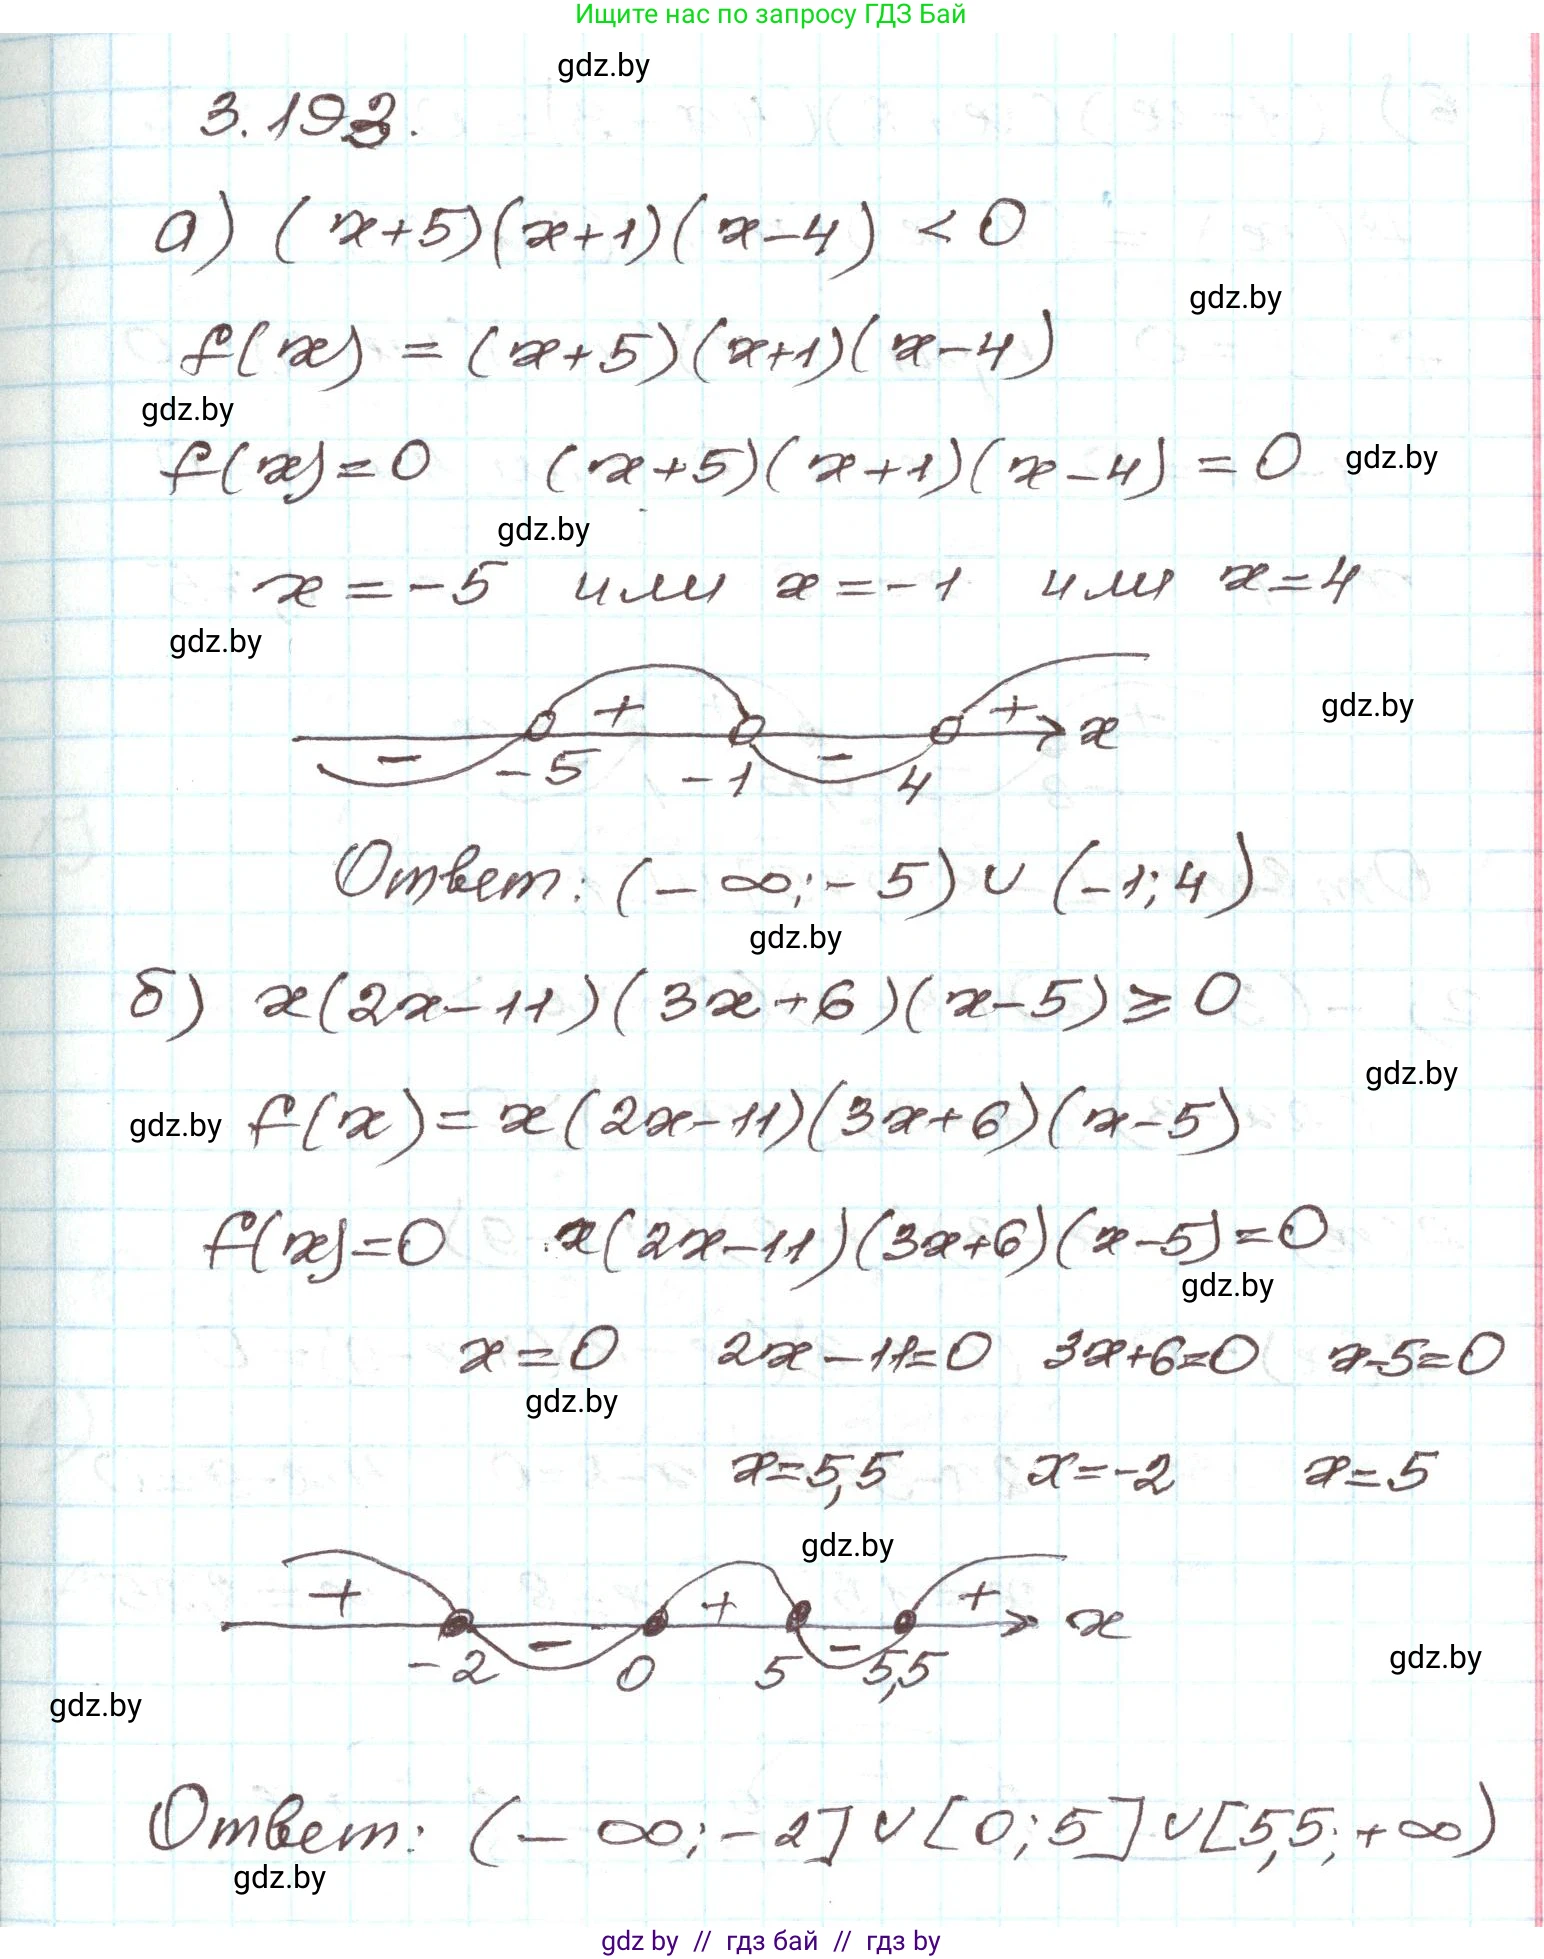 Ищите нас по запросу ГДЗ Бай
gdz.by
3.193.
а) (x+5)(x+1)(x-4) < 0
gdz.by
f(x) = (x+5)(x+1)(x-4)
gdz.by
f(x)=0 (x+5)(x+1)(x-4) = 0 gdz.by
gdz.by
x = -5 или x = -1 или x = 4
gdz.by
gdz.by
+ + x
- -5 -1 - 4
Ответ: (-∞; -5) ∪ (-1; 4)
gdz.by
б) x(2x-11)(3x+6)(x-5) ≥ 0
gdz.by
gdz.by f(x) = x(2x-11)(3x+6)(x-5)
f(x)=0 x(2x-11)(3x+6)(x-5)=0
gdz.by
x=0 2x-11=0 3x+6=0 x-5=0
gdz.by
x=5,5 x=-2 x=5
gdz.by
+ + + x
-2 - 0 5 - 5,5
gdz.by
gdz.by
Ответ: (-∞; -2] ∪ [0; 5] ∪ [5,5; +∞)
gdz.by
gdz by // гдз бай // гдз by